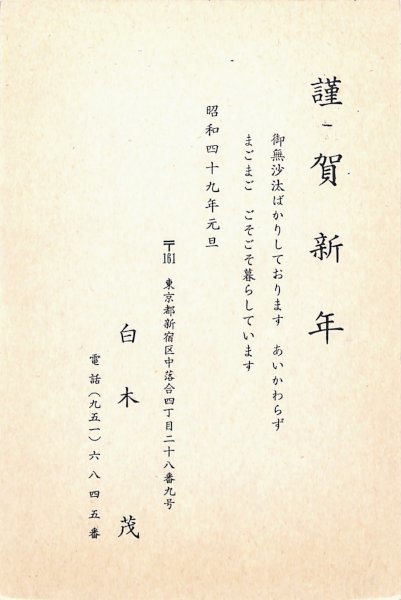 謹賀新年
御無沙汰ばかりしております　あいかわらず
まごまご　ごそごそ暮らしています
昭和四十九年元旦
〒161　東京都新宿区中落合四丁目二十八番九号
白木　茂
電話（九五一）六八四五番